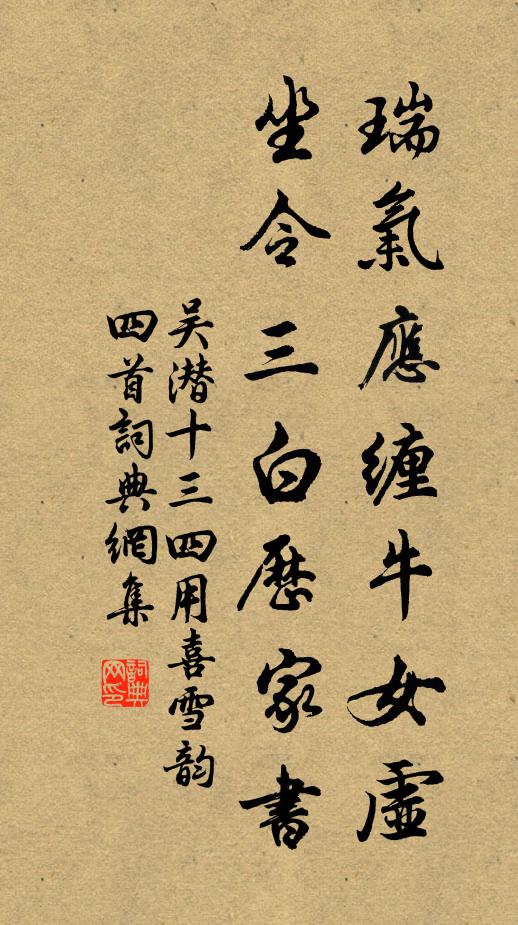 瑞氣應纏牛女虛
坐令三白歷家書
吳潜十三四用喜雪韵
四首詞典網集
詞典网印